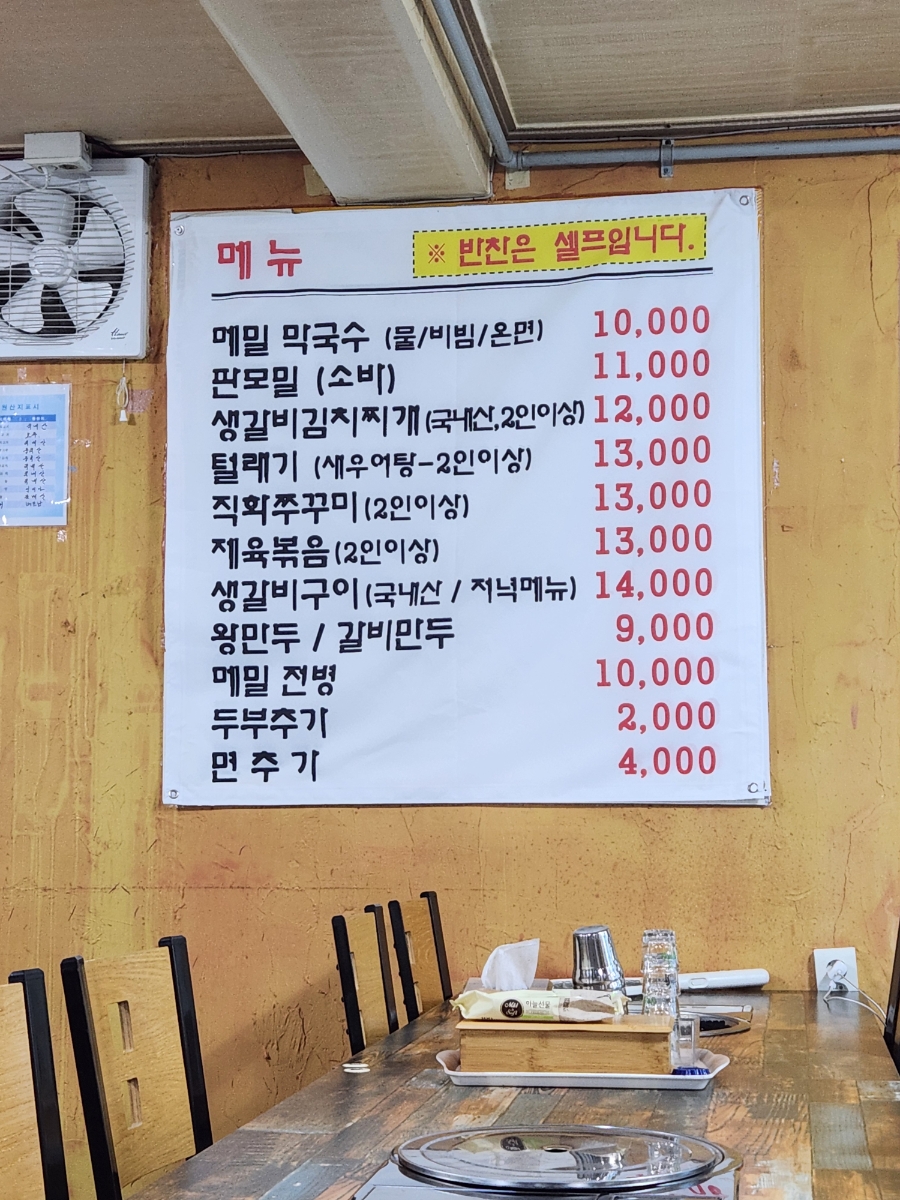 메뉴
※ 반찬은 셀프입니다.
메밀 막국수 (물/비빔/온면) 10,000
판모밀 (소바) 11,000
생갈비김치찌개(국내산,2인이상) 12,000
털래기 (새우어탕-2인이상) 13,000
직화쭈꾸미(2인이상) 13,000
제육볶음(2인이상) 13,000
생갈비구이(국내산 / 저녁메뉴) 14,000
왕만두 / 갈비만두 9,000
메밀 전병 10,000
두부추가 2,000
면 추 가 4,000
원산지표시
하늘선물